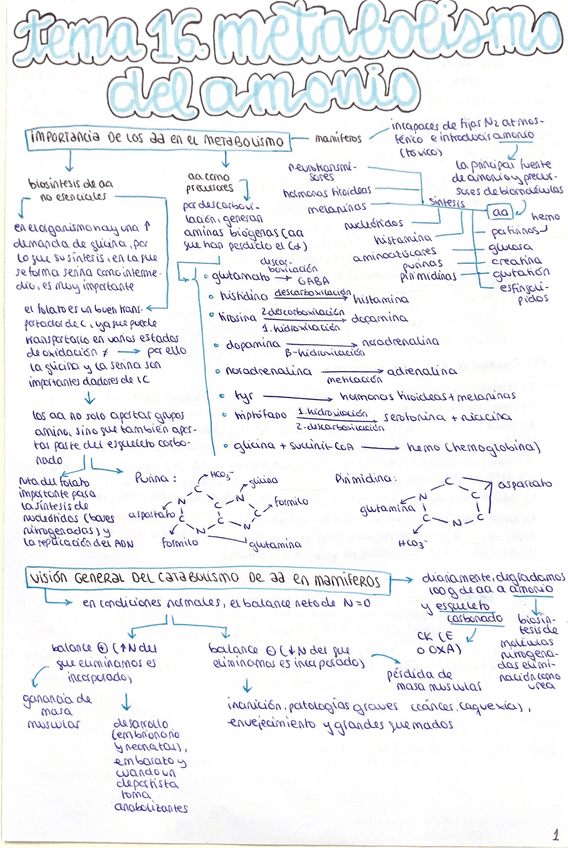 tema 16. metabolismo
del amonio
IMPORTANCIA DE LOS aa EN EL METABOLISMO
mamíferos
incapaces de fijar N2 atmos-
férico e introducir amonio
(tóxico)
la principal fuente
de amonio y precur-
sores de biomoléculas
biosíntesis de aa
no esenciales
en el organismo hay una ↑
demanda de glicina, por
lo que su síntesis, en la que
se forma serina como interme-
dio, es muy importante
el folato es un buen trans-
portador de C, ya que puede
transportarlo en varios estados
de oxidación ≠ → por ello
la glicina y la serina son
importantes dadores de 1C
los aa no solo aportan grupos
amino, sino que también apor-
tan parte del esqueleto carbo-
nado
ruta del folato
importante para
la síntesis de
nucleótidos (bases
nitrogenadas) y
la replicación del ADN
aa como
precursores
por descarboxi-
lación, generan
aminas biógenas (aa
que han perdido el Cα)
neurotransmi-
sores
hormonas tiroideas
melaninas
nucleótidos
histamina
aminoazúcares
purinas
pirimidinas
síntesis
aa
hemo
porfirinas
glucosa
creatina
glutatión
esfingolí-
pidos
glutamato descarboxilación → GABA
histidina descarboxilación → histamina
tirosina 2. descarboxilación → dopamina
1. hidroxilación
dopamina → noradrenalina
β-hidroxilación
noradrenalina → adrenalina
metilación
tyr → hormonas tiroideas + melaninas
triptófano 1. hidroxilación → serotonina + niacina
2. descarboxilación
glicina + succinil-CoA → hemo (hemoglobina)
Purina:
HCO3-
glicina
aspartato
formilo
formilo
glutamina
N C C N C C N C N
Pirimidina:
aspartato
glutamina
HCO3-
N C C C N C
VISIÓN GENERAL DEL CATABOLISMO DE aa EN MAMÍFEROS
diariamente, degradamos
100 g de aa a amonio
y esqueleto
carbonado
CK (E
o OXA)
biosín-
tesis de
moléculas
nitrogena-
das elimi-
nación como
urea
en condiciones normales, el balance neto de N=0
balance ⊕ (↑N del
que eliminamos es
incorporado)
ganancia de
masa
muscular
desarrollo
(embrionario
y neonatal),
embarazo y
cuando un
deportista
toma
anabolizantes
balance ⊖ (↓N del que
eliminamos es incorporado)
pérdida de
masa muscular
inanición, patologías graves (cáncer, caquexia),
envejecimiento y grandes quemados
1